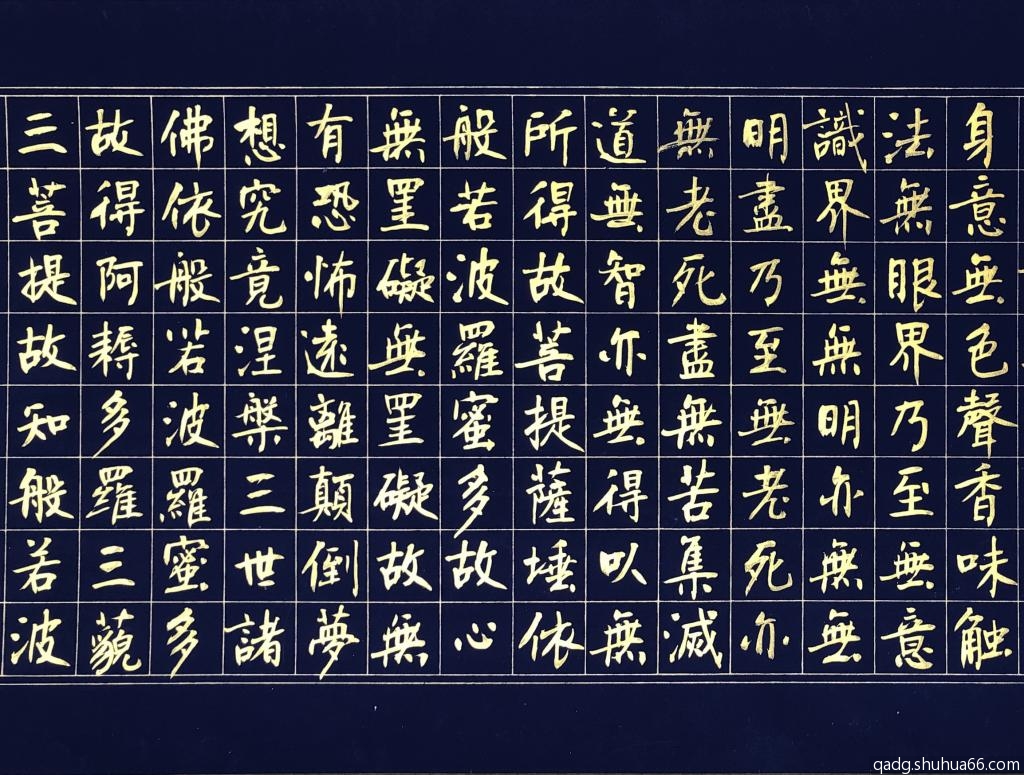 身意無色聲香味触
法無眼界乃至無意
識界無無明亦無無
明盡乃至無老死亦
無老死盡無苦集滅
道無智亦無得以無
所得故菩提薩埵依
般若波羅蜜多故心
無罣礙無罣礙故無
有恐怖遠離顛倒夢
想究竟涅槃三世諸
佛依般若波羅蜜多
故得阿耨多羅三藐
三菩提故知般若波
qadg.shuhua66.com